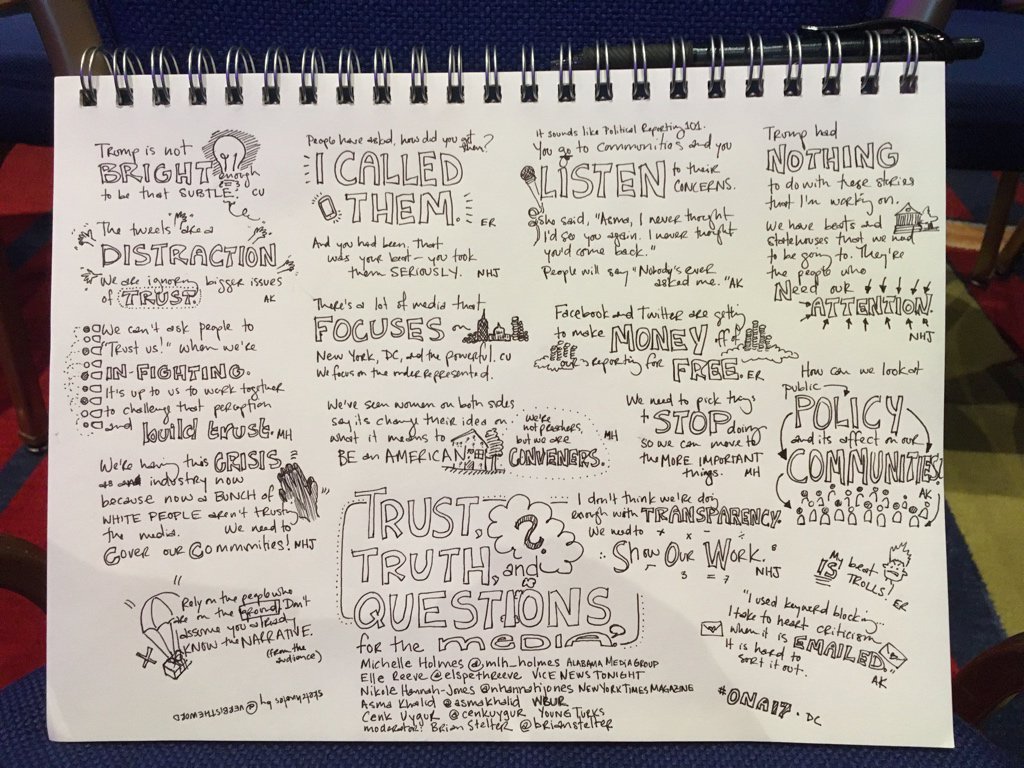 Trump is not
BRIGHT enough
to be that SUBTLE. CU
The tweets are a
DISTRACTION
We are ignoring bigger issues
of TRUST. AK
We can't ask people to
"Trust us!" when we're
IN-FIGHTING.
It's up to us to work together
to challenge that perception
and build trust. MH
We're having this CRISIS
industry now
because now a BUNCH of
WHITE PEOPLE aren't trusting
the media. We need to
COVER OUR COMMUNITIES! NHJ
Rely on the people who
are on the ground. Don't
assume you already
KNOW the NARRATIVE.
(from the audience)
sketchnotes by @VERBISTHEWORD
People have asked, how did you get them?
I CALLED
THEM. ER
And you had been. That
was your beat - you took
them SERIOUSLY. NHJ
There's a lot of media that
FOCUSES on
New York, DC, and the powerful. CU
We focus on the underrepresented.
We've seen women on both sides
say its change their idea on
what it means to
BE an AMERICAN
we're
not preachers,
but we are
CONVENERS.
MH
TRUST,
TRUTH, and
QUESTIONS
for the media?
Michelle Holmes @_mlh_holmes ALABAMA MEDIA GROUP
Elle Reeve @elspethreeve VICE NEWS TONIGHT
Nikole Hannah-Jones @nhannahjones NEW YORK TIMES MAGAZINE
Asma Khalid @asmakhalid WBUR
Cenk Uygur @cenkuygur YOUNG TURKS
moderator: Brian Stelter @brianstelter
It sounds like Political Reporting 101.
You go to communities and you
LISTEN to their
CONCERNS.
She said, "Asma, I never thought
I'd see you again. I never thought
you'd come back."
People will say "Nobody's ever
asked me." AK
Facebook and Twitter are getting
to make MONEY off of
our reporting for
FREE. ER
We need to pick things
to STOP doing
so we can move to
the MORE IMPORTANT
things. MH
I don't think we're doing
enough with TRANSPARENCY.
We need to
Show Our Work.
3 = 7
NHJ
Trump had
NOTHING
to do with these stories
that I'm working on.
We have beats and
statehouses that we need
to be going to. They're
the people who
Need our
ATTENTION.
NHJ
How can we look at
public
POLICY
and its affect on our
COMMUNITIES?
AK
My beat
IS TROLLS. ER
"I used keyword blocking...
I take to heart criticism
when it is EMAILED"
It is hard to
sort it out.
AK
#ONA17 . DC